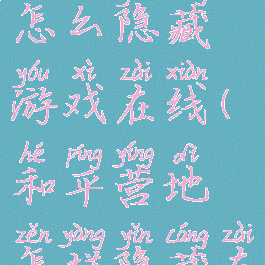 怎么隐藏
yóu xì zài xiàn
游戏在线(
hé píng yíng dì
和平营地
zěn yàng yǐn cáng zài
怎样隐藏在